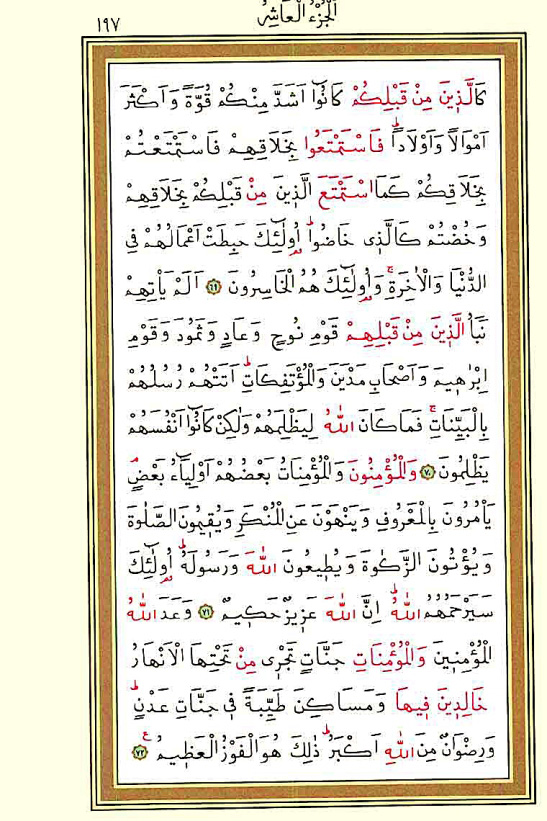 الجزء العاشر
١٩٧
كَالَّذِينَ مِنْ قَبْلِكُمْ كَانُٓوا اَشَدَّ مِنْكُمْ قُوَّةً وَاَكْثَرَ
اَمْوَالًا وَاَوْلَادًاۜ فَاسْتَمْتَعُوا بِخَلَاقِهِمْ فَاسْتَمْتَعْتُمْ
بِخَلَاقِكُمْ كَمَا اسْتَمْتَعَ الَّذِينَ مِنْ قَبْلِكُمْ بِخَلَاقِهِمْ
وَخُضْتُمْ كَالَّذِى خَاضُواۜ اُو۬لٰٓئِكَ حَبِطَتْ اَعْمَالُهُمْ فِى
الدُّنْيَا وَالْاٰخِرَةِۚ وَاُو۬لٰٓئِكَ هُمُ الْخَاسِرُونَ ﴿٦٩﴾ اَلَمْ يَاْتِهِمْ
نَبَاُ الَّذِينَ مِنْ قَبْلِهِمْ قَوْمِ نُوحٍ وَعَادٍ وَثَمُودَ وَقَوْمِ
اِبْرٰهِيمَ وَاَصْحَابِ مَدْيَنَ وَالْمُؤْتَفِكَاتِۜ اَتَتْهُمْ رُسُلُهُمْ
بِالْبَيِّنَاتِۚ فَمَا كَانَ اللّٰهُ لِيَظْلِمَهُمْ وَلٰكِنْ كَانُٓوا اَنْفُسَهُمْ
يَظْلِمُونَ ﴿٧٠﴾ وَالْمُؤْمِنُونَ وَالْمُؤْمِنَاتُ بَعْضُهُمْ اَوْلِيَٓاءُ بَعْضٍۢ
يَاْمُرُونَ بِالْمَعْرُوفِ وَيَنْهَوْنَ عَنِ الْمُنْكَرِ وَيُقِيمُونَ الصَّلٰوةَ
وَيُؤْتُونَ الزَّكٰوةَ وَيُطِيعُونَ اللّٰهَ وَرَسُولَهُۜ اُو۬لٰٓئِكَ
سَيَرْحَمُهُمُ اللّٰهُۜ اِنَّ اللّٰهَ عَزِيزٌ حَكِيمٌ ﴿٧١﴾ وَعَدَ اللّٰهُ
الْمُؤْمِنِينَ وَالْمُؤْمِنَاتِ جَنَّاتٍ تَجْرِى مِنْ تَحْتِهَا الْاَنْهَارُ
خَالِدِينَ فِيهَا وَمَسَاكِنَ طَيِّبَةً فِى جَنَّاتِ عَدْنٍۜ
وَرِضْوَانٌ مِنَ اللّٰهِ اَكْبَرُۜ ذٰلِكَ هُوَ الْفَوْزُ الْعَظِيمُ ع ﴿٧٢﴾